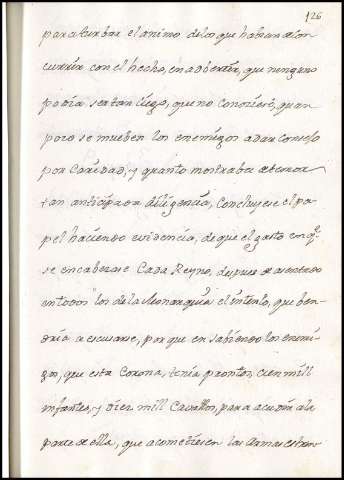 126
para turbar el animo delos que hauian de con
currir con el hecho, en aduertir, que ninguno
podia ser tan ciego, que no conociese, quan
poco se mueben los enemigos a dar consejo
por Caridad, y quanto mostraba
tan anticipada diligencia, Concluyese el pa
pel haciendo euidencia, de que el gasto conq.^e
se encabezase Cada Reyno, despues de asentado
entodos los de la Monarquia el intento, que ben-
dria a escusarse, porque en sabiendo los enemi-
gos, que esta Corona, tenia prontos, cien mill
infantes, y diez mill Cavallos, para acudir ala
parte de ella, que acometiesen las Armas estran-